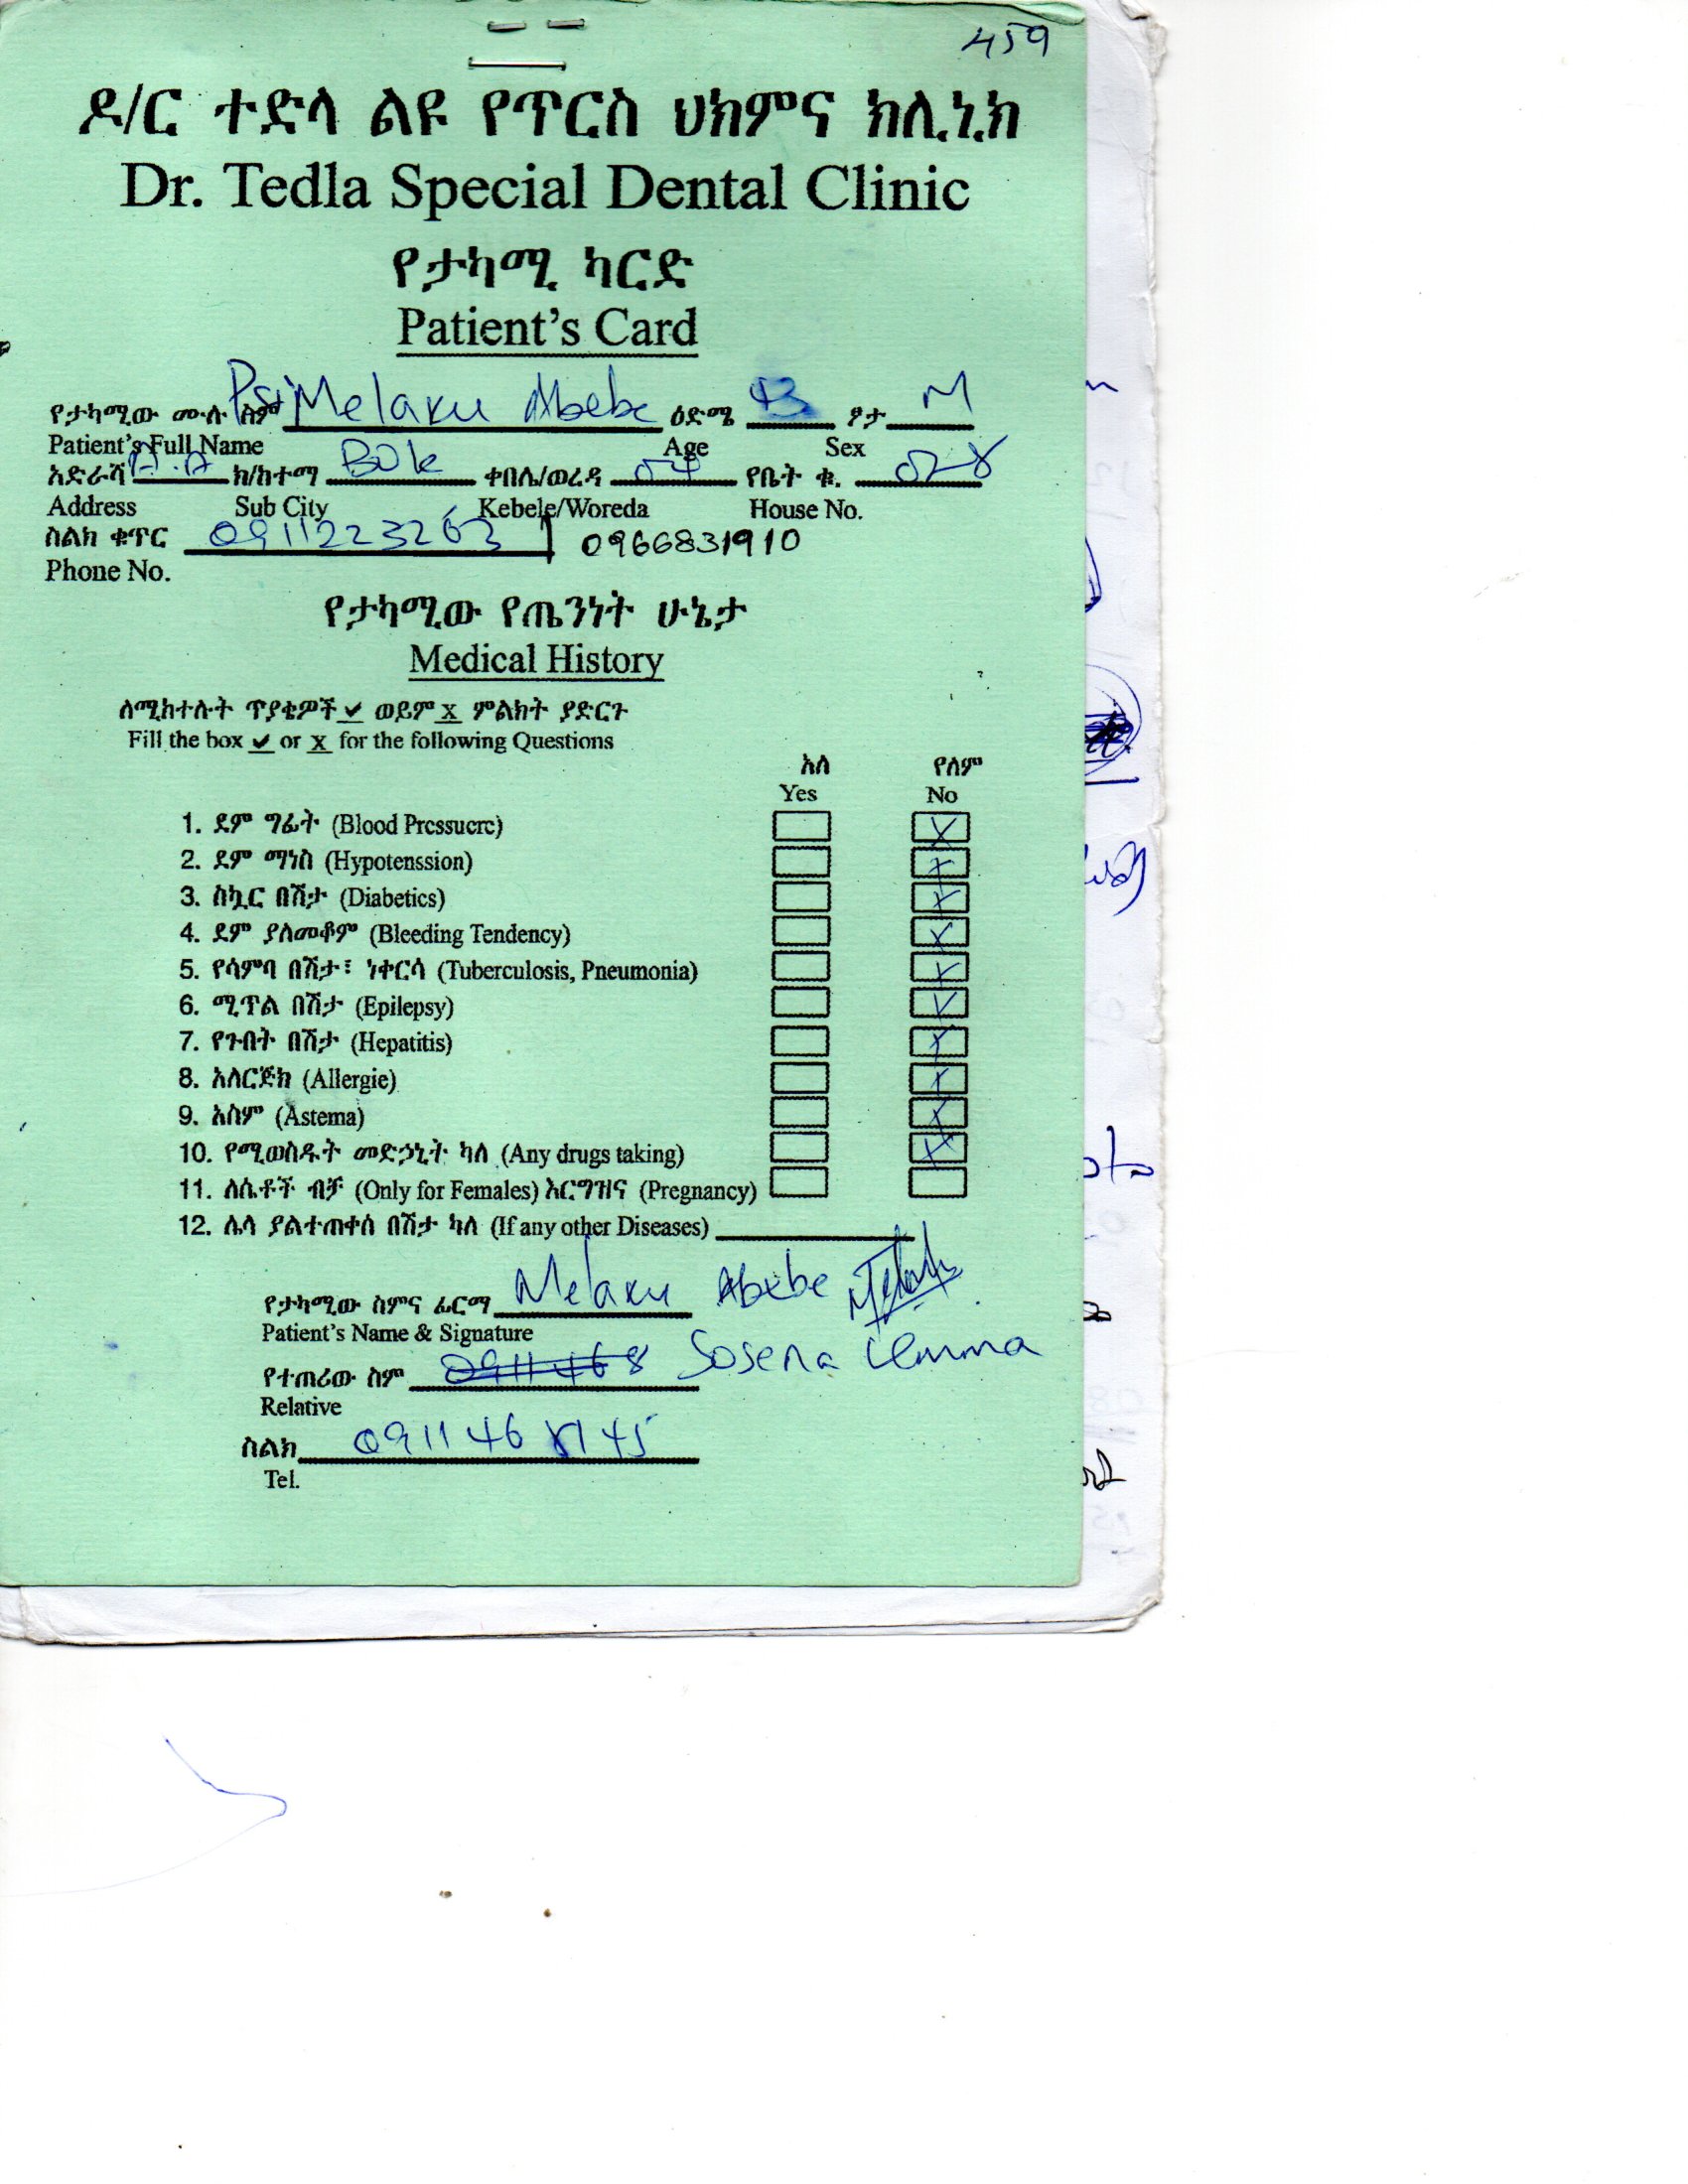 459
ዶ/ር ተድላ ልዩ የጥርስ ህክምና ክሊኒክ
Dr. Tedla Special Dental Clinic
የታካሚ ካርድ
Patient's Card
የታካሚው ሙሉ ስም Melaku Abebe ዕድሜ ፆታ M
Patient's Full Name Age Sex
አድራሻ A.A ክ/ከተማ Bole ቀበሌ/ወረዳ 04 የቤት ቁ.
Address Sub City Kebele/Woreda House No.
ስልክ ቁጥር 0911223263 0966831910
Phone No.
የታካሚው የጤንነት ሁኔታ
Medical History
ለሚከተሉት ጥያቄዎች ✔ ወይም X ምልክት ያድርጉ
Fill the box ✔ or X for the following Questions
አለ የለም
Yes No
1. ደም ግፊት (Blood Pressuere) X
2. ደም ማነስ (Hypotenssion) X
3. ስኳር በሽታ (Diabetics) X
4. ደም ያለመቆም (Bleeding Tendency) X
5. የሳምባ በሽታ፣ ነቀርሳ (Tuberculosis, Pneumonia) X
6. ሚጥል በሽታ (Epilepsy) X
7. የጉበት በሽታ (Hepatitis) X
8. አለርጅክ (Allergie) X
9. አስም (Astema) X
10. የሚወስዱት መድኃኒት ካለ (Any drugs taking) X
11. ለሴቶች ብቻ (Only for Females) እርግዝና (Pregnancy)
12. ሌላ ያልተጠቀሰ በሽታ ካለ (If any other Diseases)
የታካሚው ስምና ፊርማ Melaku Abebe
Patient's Name & Signature
የተጠሪው ስም Sosena Lemma
Relative
ስልክ 0911468145
Tel.